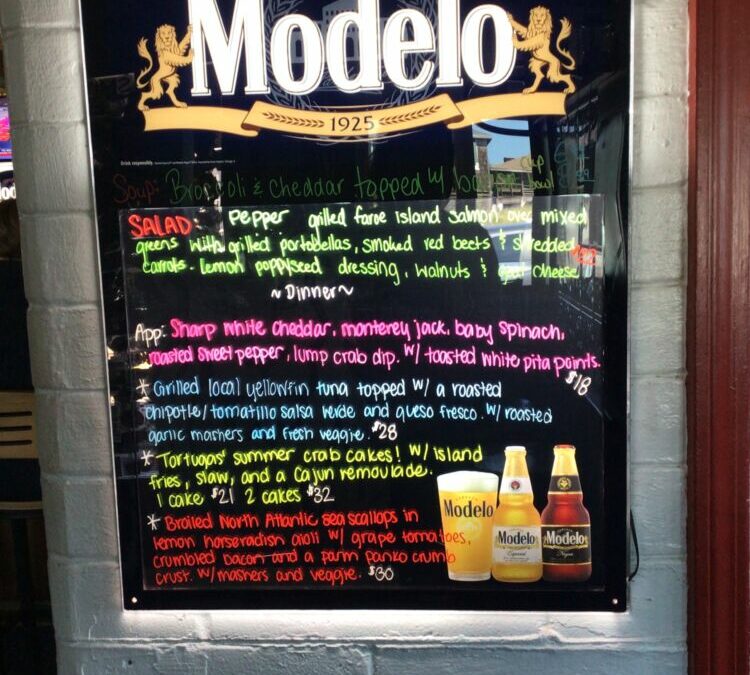 Modelo
1925
Drink responsibly.
Soup: Broccoli & cheddar topped w/ cup
bowl
SALAD: Pepper grilled faroe island salmon over mixed
greens with grilled portabellas, smoked red beets & shredded
carrots. lemon poppyseed dressing, walnuts & goat cheese
~Dinner~
App: Sharp white cheddar, monterey jack, baby spinach,
roasted sweet pepper, lump crab dip. w/ toasted white pita points.
$18
* Grilled local yellowfin tuna topped w/ a roasted
chipotle/tomatillo salsa verde and queso fresco. w/ roasted
garlic mashers and fresh veggie. $28
* Tortugas' summer crab cakes! w/ island
fries, slaw, and a Cajun remoulade.
1 cake $21 2 cakes $32
* Broiled North Atlantic sea scallops in
lemon horseradish aioli w/ grape tomatoes,
crumbled bacon and a parm panko crumb
crust. w/ mashers and veggie. $30
Modelo
Modelo
Especial
Modelo
Negra